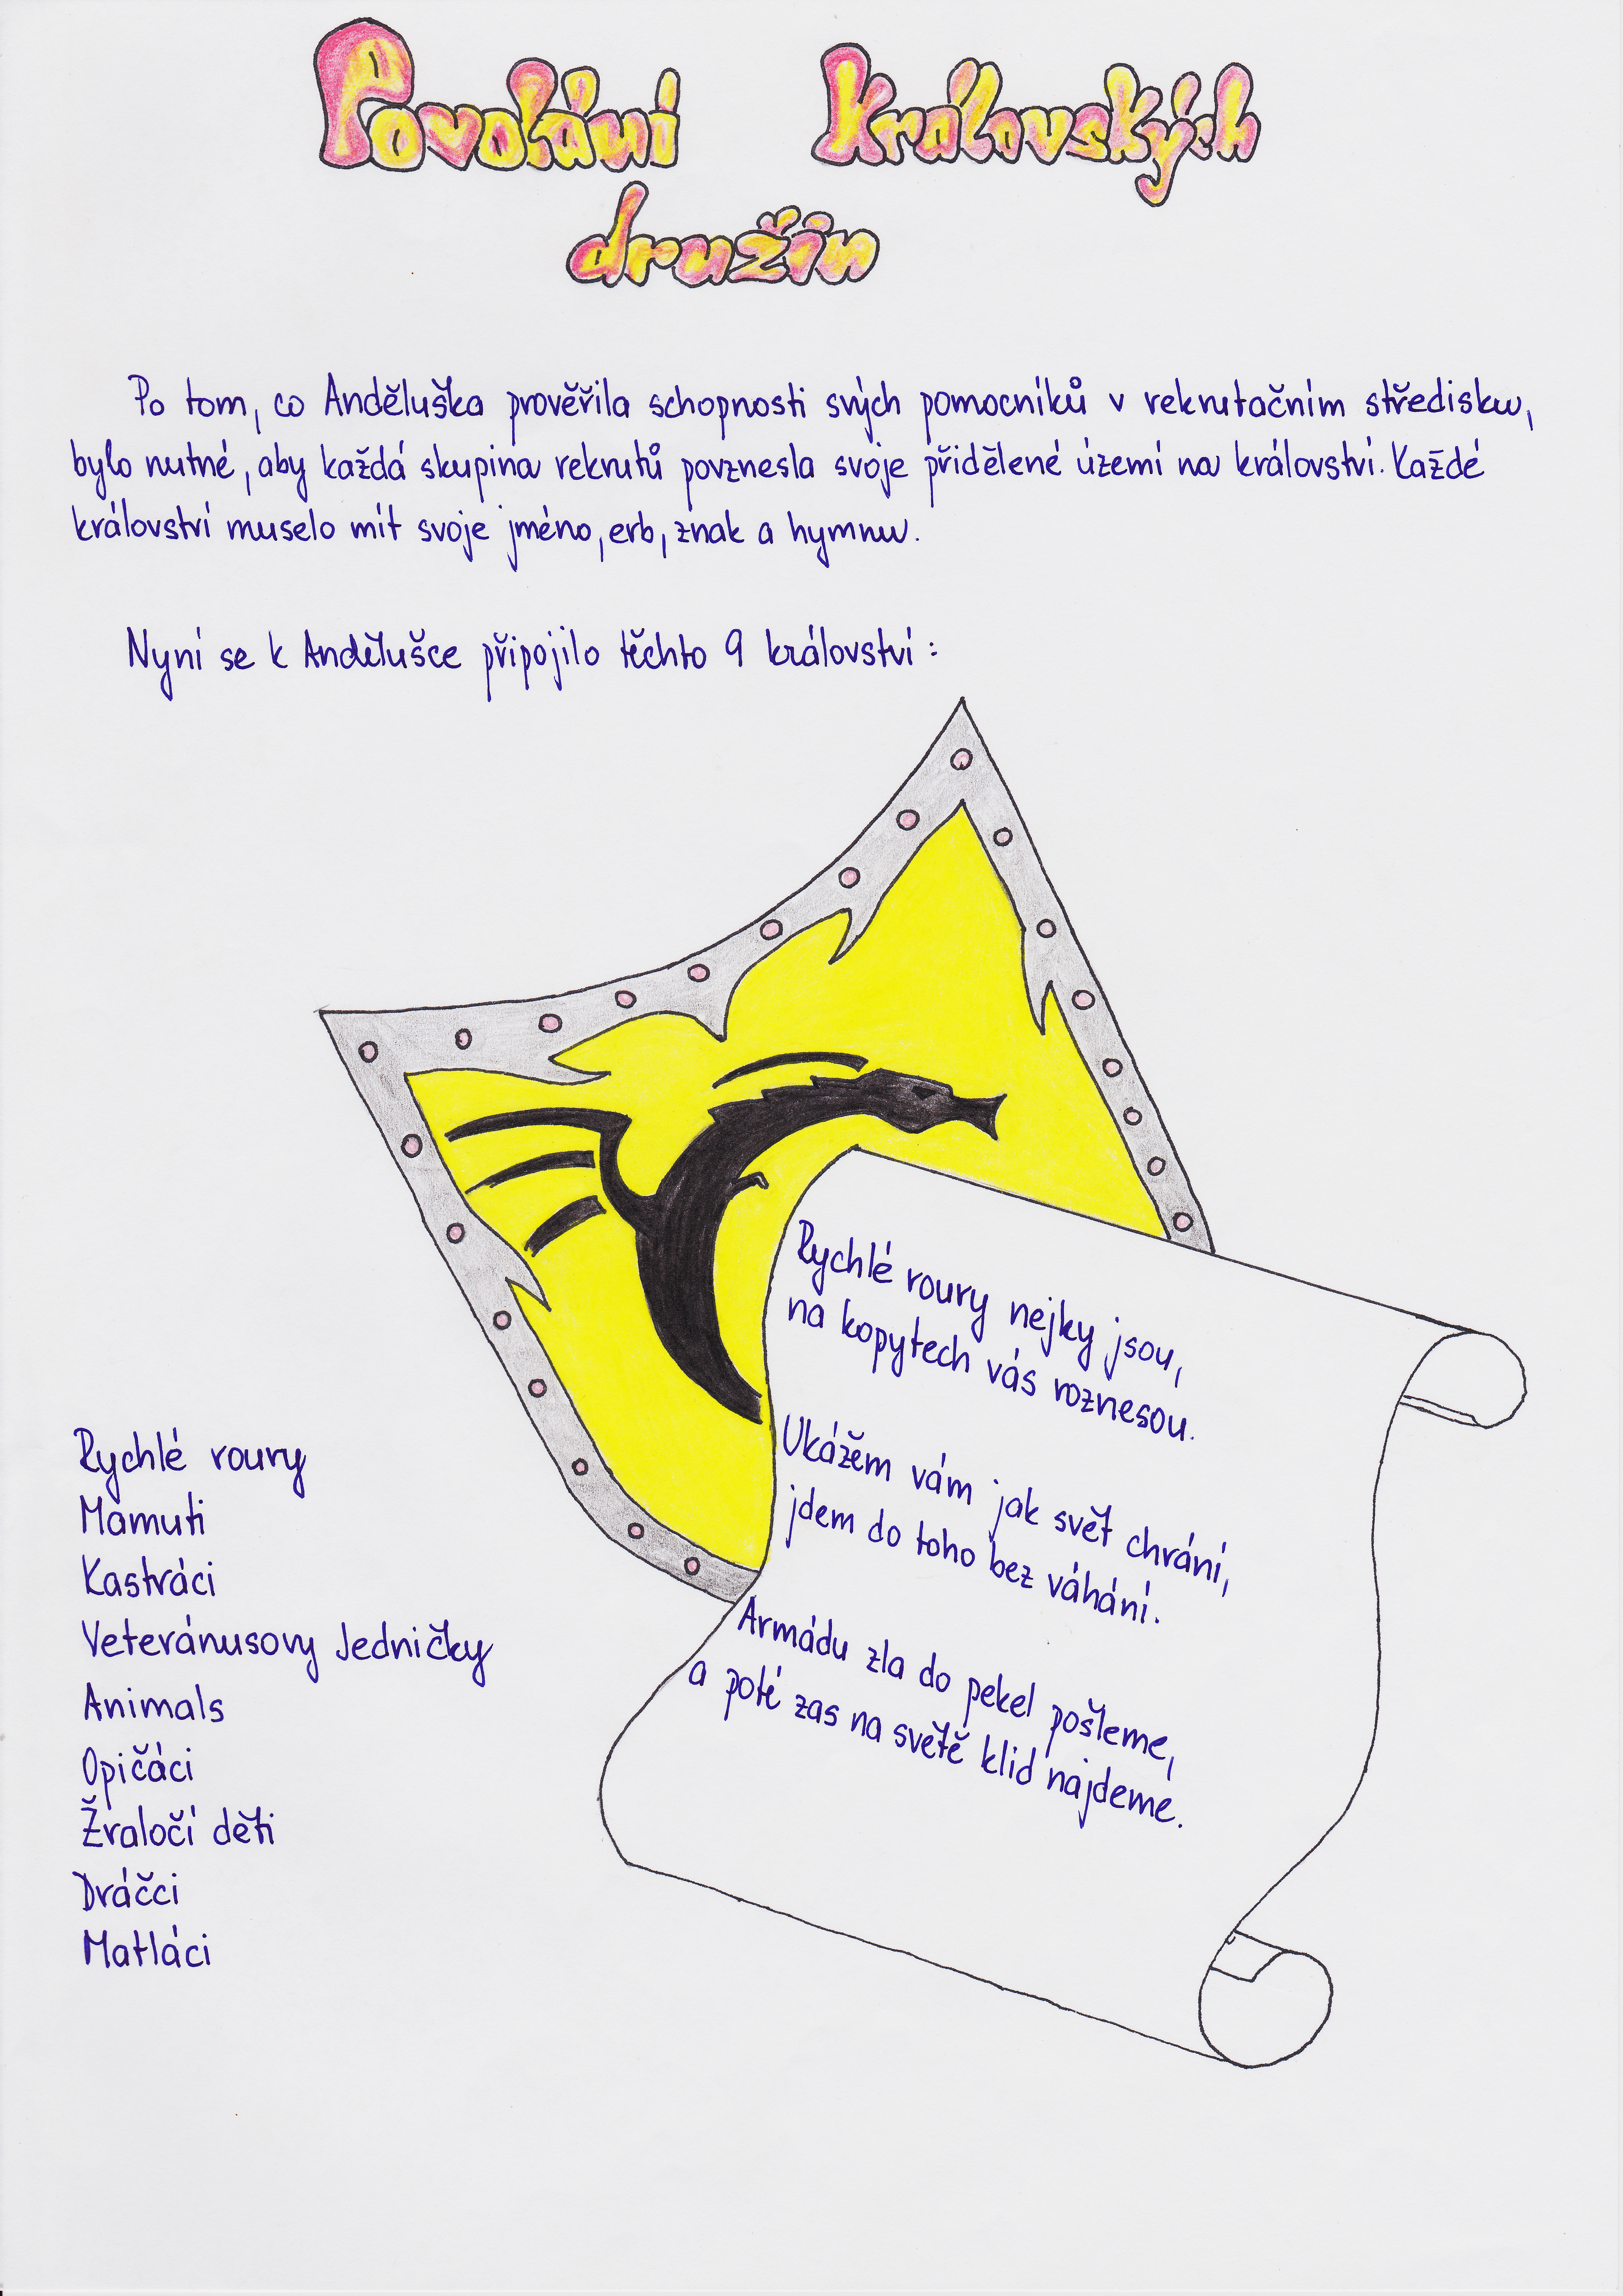 Povolání Královských
družin
Po tom, co Anděluška prověřila schopnosti svých pomocníků v rekrutačním středisku,
bylo nutné, aby každá skupina rekrutů povznesla svoje přidělené území na království. Každé
království muselo mít svoje jméno, erb, znak a hymnu.
Nyní se k Andělušce připojilo těchto 9 království:
Rychlé roury nejky jsou,
na kopytech vás roznesou.
Ukážem vám jak svět chrání,
jdem do toho bez váhání.
Armádu zla do pekel pošleme,
a poté zas na světě klid najdeme.
Rychlé roury
Mamuti
Kastráci
Veteránusovy Jedničky
Animals
Opičáci
Žraločí děti
Dráčci
Matláci